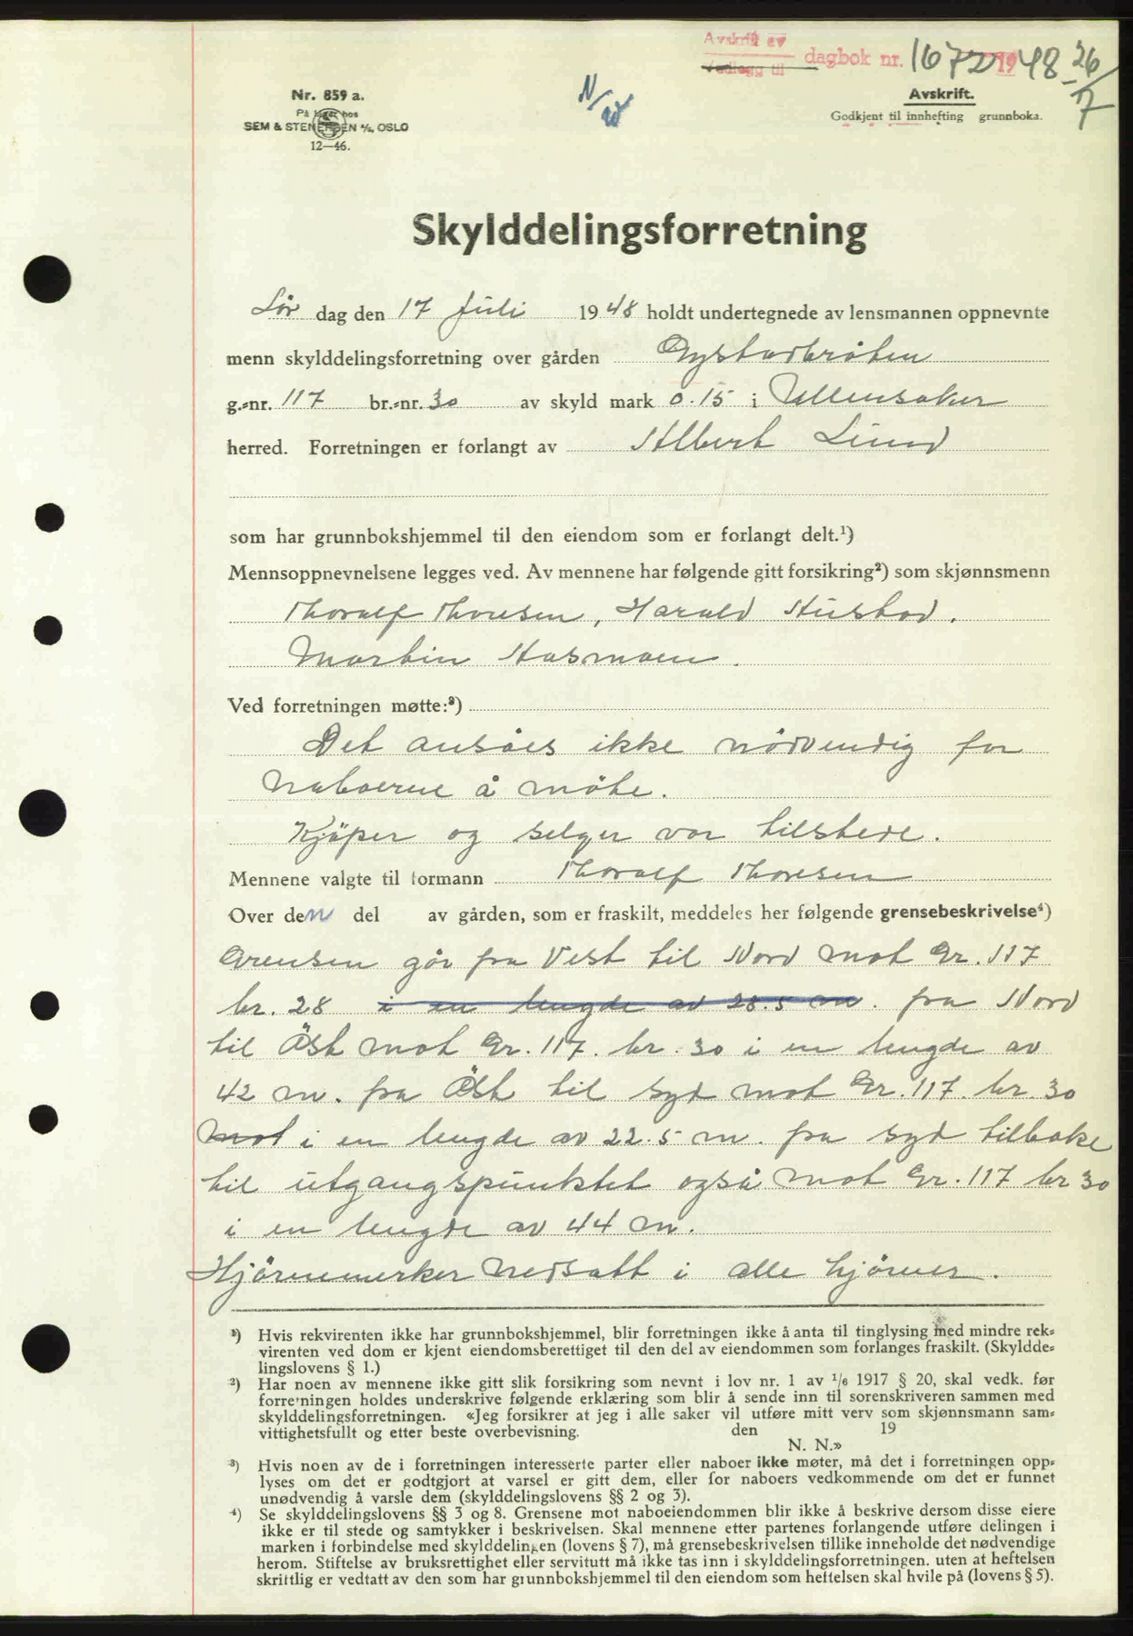 Avskrift av
Vedlegg til dagbok nr. 1672 1948 26/7
Nr. 859 a.
På lager hos
SEM & STENERSEN A/S, OSLO
12—46.
Avskrift.
Godkjent til innhefting grunnboka.
Skylddelingsforretning
Lör dag den 17 Juli 1948 holdt undertegnede av lensmannen oppnevnte
menn skylddelingsforretning over gården Gystadbråten
g.-nr. 117 br.-nr. 30 av skyld mark 0.15 i Ullensaker
herred. Forretningen er forlangt av Albert Lund
som har grunnbokshjemmel til den eiendom som er forlangt delt.¹)
Mennsoppnevnelsene legges ved. Av mennene har følgende gitt forsikring²) som skjønnsmenn
Thoralf Thoresen, Harald
Martin Aasmoen.
Ved forretningen møtte:³)
Det ansåes ikke nödvendig for
Naboerne å möte.
Kjöper og selger var tilstede.
Mennene valgte til formann Thoralf Thoresen
Over den del av gården, som er fraskilt, meddeles her følgende grensebeskrivelse⁴)
Grensen går fra Vest til Nord mot Gr. 117
br. 28 i en lengde av 28.5 m. fra Nord
til Öst mot Gr. 117. br. 30 i en lengde av
42 m. fra Öst til syd mot Gr. 117. br. 30
mot i en lengde av 22.5 m. fra syd tilbake
til utgangspunktet også mot Gr. 117 br 30
i en lengde av 44 m.
Hjörnemerker Nedsatt i alle hjörner.
¹) Hvis rekvirenten ikke har grunnbokshjemmel, blir forretningen ikke å anta til tinglysing med mindre rek-
virenten ved dom er kjent eiendomsberettiget til den del av eiendommen som forlanges fraskilt. (Skyldde-
lingslovens § 1.)
²) Har noen av mennene ikke gitt slik forsikring som nevnt i lov nr. 1 av ¹/₆ 1917 § 20, skal vedk. før
forretningen holdes underskrive følgende erklæring som blir å sende inn til sorenskriveren sammen med
skylddelingsforretningen. «Jeg forsikrer at jeg i alle saker vil utføre mitt verv som skjønnsmann sam-
vittighetsfullt og etter beste overbevisning. den 19
N. N.»
³) Hvis noen av de i forretningen interesserte parter eller naboer ikke møter, må det i forretningen opp-
lyses om det er godtgjort at varsel er gitt dem, eller for naboers vedkommende om det er funnet
unødvendig å varsle dem (skylddelingslovens §§ 2 og 3).
⁴) Se skylddelingslovens §§ 3 og 8. Grensene mot naboeiendommen blir ikke å beskrive dersom disse eiere
ikke er til stede og samtykker i beskrivelsen. Skal mennene etter partenes forlangende utføre delingen i
marken i forbindelse med skylddelingen (lovens § 7), må grensebeskrivelsen tillike inneholde det nødvendige
herom. Stiftelse av bruksrettighet eller servitutt må ikke tas inn i skylddelingsforretningen. uten at heftelsen
skriftlig er vedtatt av den som har grunnbokshjemmel til den eiendom som heftelsen skal hvile på (lovens § 5).